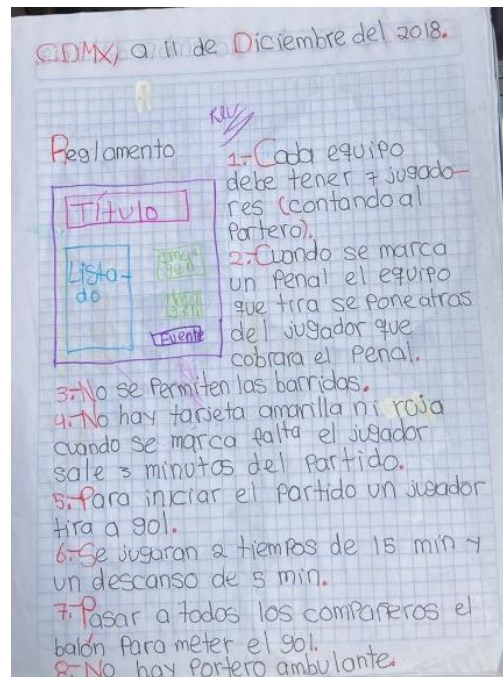 CDMX, a 11 de Diciembre del 2018.
Rev
Reglamento
Título
Lista-
do
Ima-
gen
Ima-
gen
Fuente
1.-Cada equipo
debe tener 7 jugado-
res (contando al
Portero).
2.-Cuando se marca
un Penal el equipo
que tira se pone atras
del jugador que
cobrara el Penal.
3.-No se Permiten las barridas.
4.-No hay tarjeta amarilla ni roja
cuando se marca falta el jugador
sale 3 minutos del Partido.
5.-Para iniciar el Partido un jugador
tira a gol.
6.-Se jugaran 2 tiempos de 15 min y
un descanso de 5 min.
7.-Pasar a todos los compañeros el
balón Para meter el gol.
8.-No hay Portero ambulante.